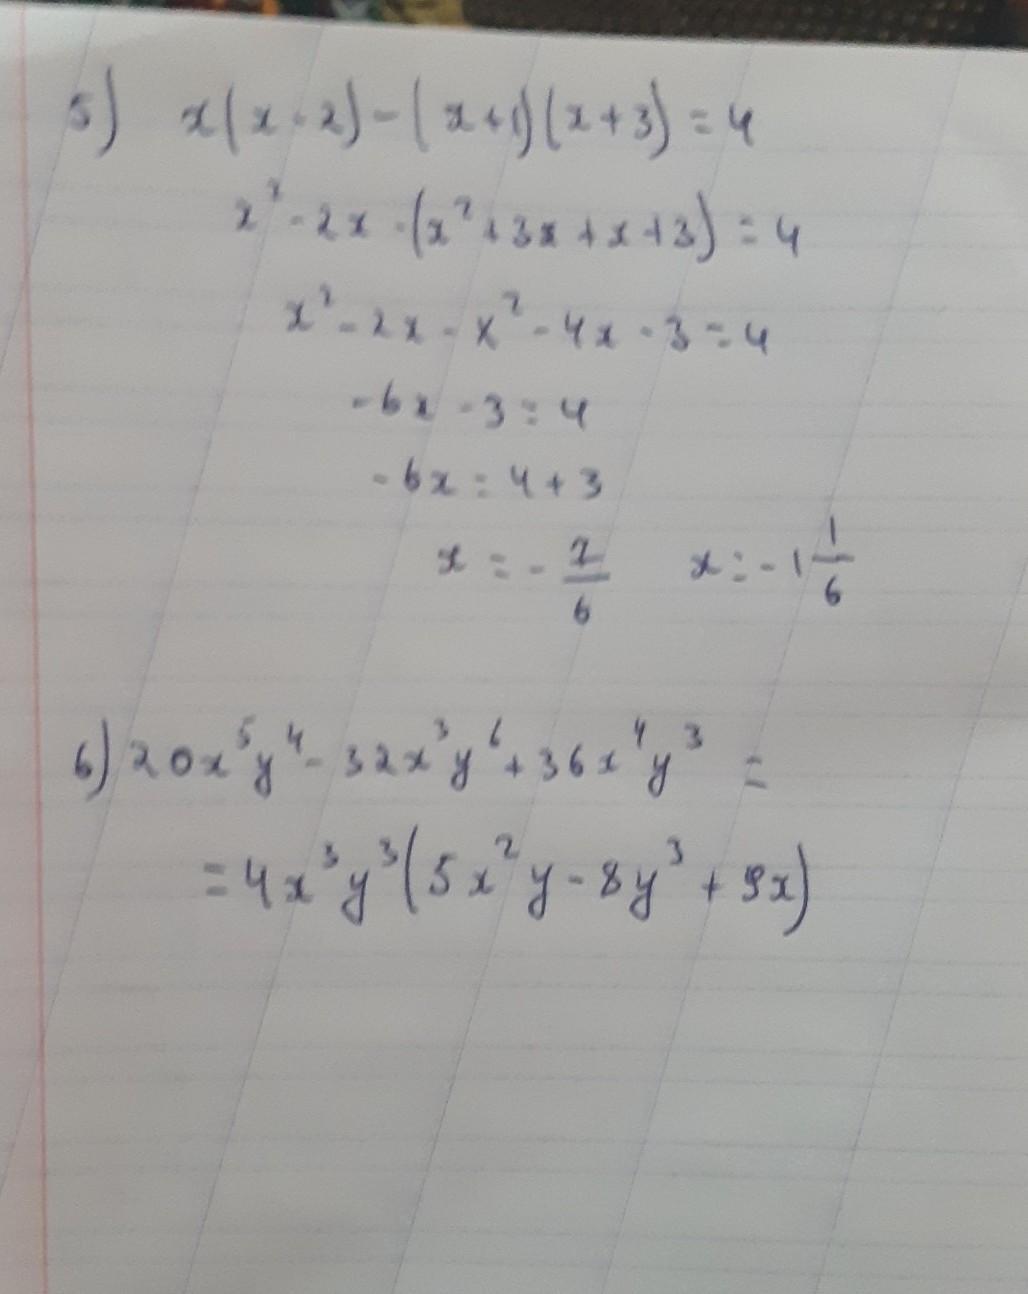 5) x(x-2)-(x+1)(x+3)=4
x²-2x-(x²+3x+x+3)=4
x²-2x-x²-4x-3=4
-6x-3=4
-6x=4+3
x=-7/6 x=-1 1/6
6) 20x⁵y⁴-32x³y⁶+36x⁴y³=
=4x³y³(5x²y-8y³+9x)